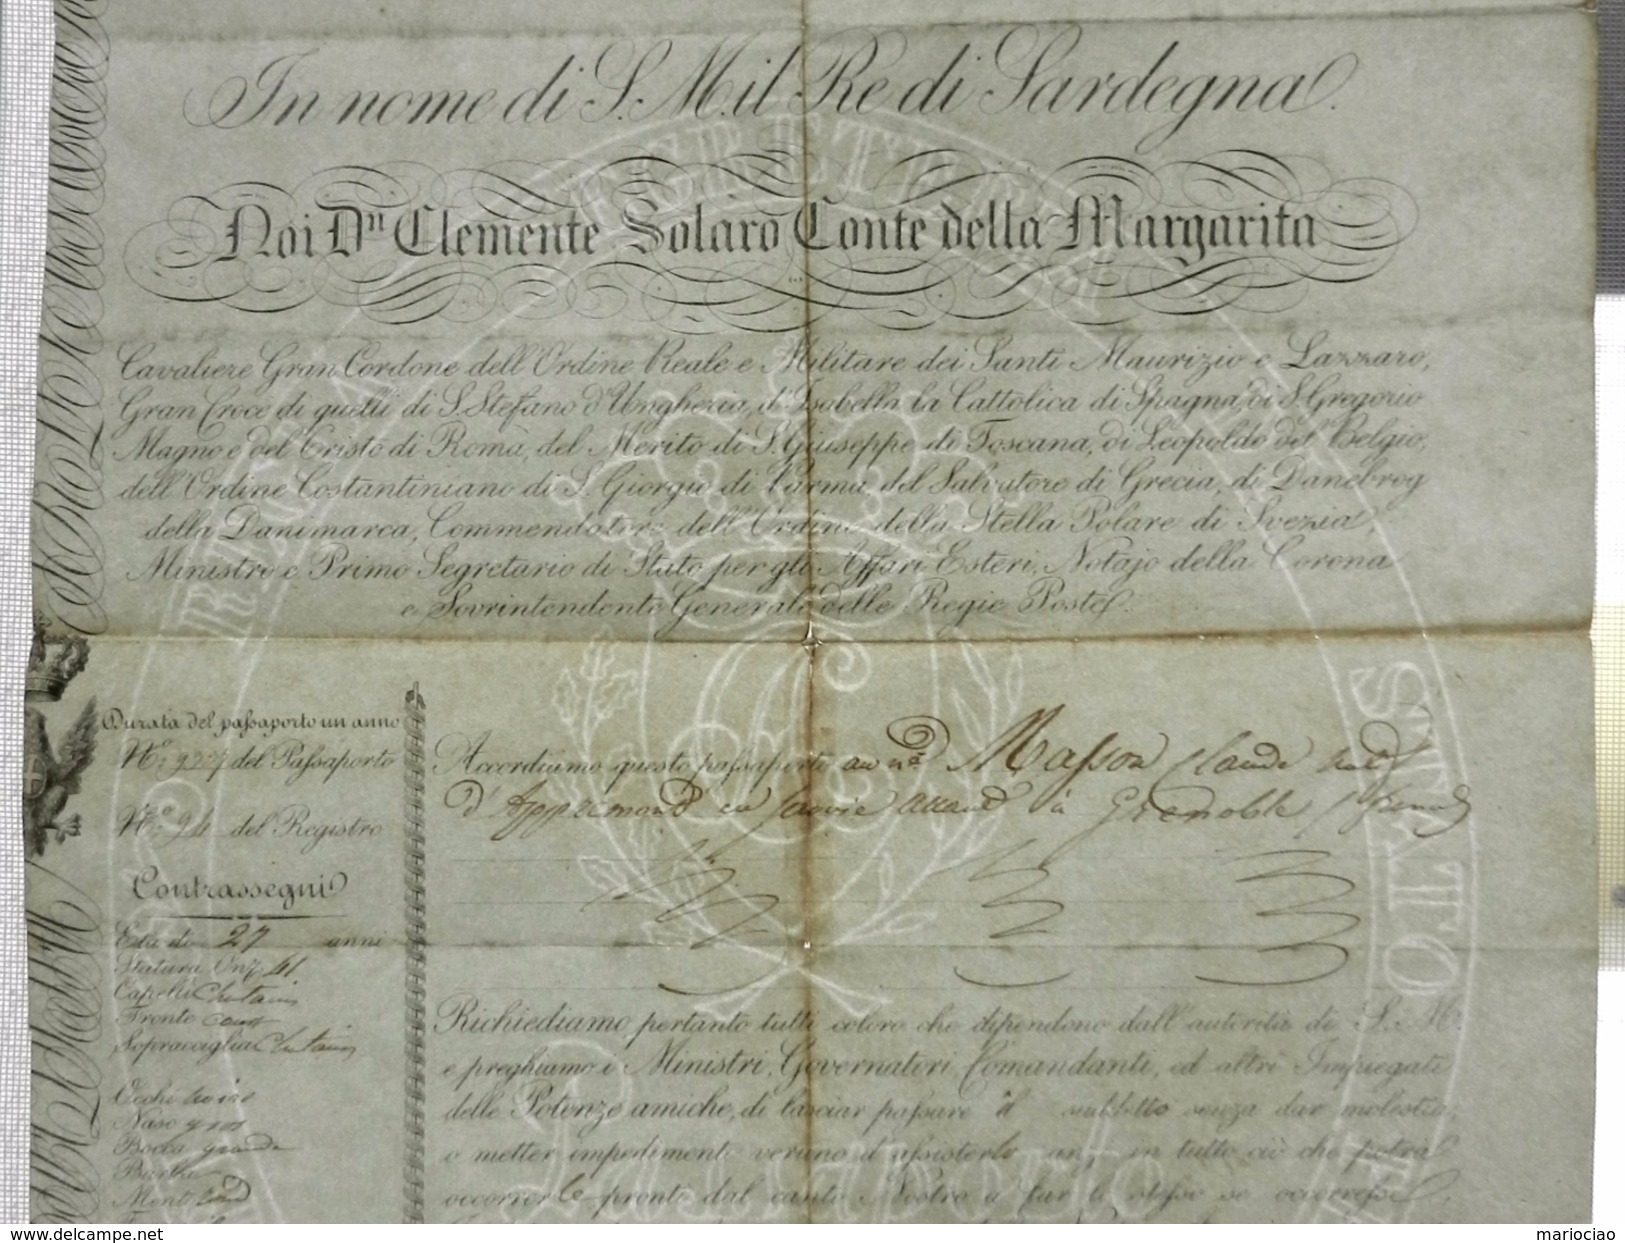 In nome di S. M. il Re di Sardegna.
Noi Dn. Clemente Solaro Conte della Margarita
Cavaliere Gran Cordone dell'Ordine Reale e Militare dei Santi Maurizio e Lazzaro,
Gran Croce di quelli di S. Stefano d'Ungheria, d'Isabella la Cattolica di Spagna, di S. Gregorio
Magno e del Cristo di Roma, del Merito di S. Giuseppe di Toscana, di Leopoldo del Belgio,
dell'Ordine Costantiniano di S. Giorgio di Parma, del Salvatore di Grecia, di Danebrog
della Danimarca, Commendatore dell'Ordine della Stella Polare di Svezia,
Ministro e Primo Segretario di Stato per gli Affari Esteri, Notajo della Corona
e Sovrintendente Generale delle Regie Poste.
Durata del passaporto un anno
No. del Passaporto
No. 94 del Registro
Contrassegni
Età di 27 anni
Statura Onz. 41
Capelli Chatains
Fronte
Sopracciglia Chatains
Occhi
Naso gros
Bocca grande
Barba
Mento rond
Accordiamo questo passaporto au né. Masson Claude
d'Appremond en Savoie allant à Grenoble
Richiediamo pertanto tutti coloro che dipendono dall'autorità di S. M.
e preghiamo i Ministri, Governatori, Comandanti, ed altri Impiegati
delle Potenze amiche, di lasciar passare il suddetto senza dar molestia,
o metter impedimento veruno, d'assisterlo anzi in tutto ciò che potrà
occorrerle pronti dal canto Nostro a far lo stesso se occorresse
mariociao
delcampe.net